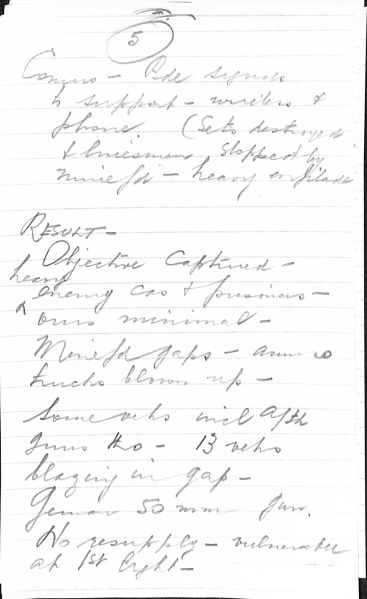 5
Comms - Bde signals
to support - wireless &
phone. (Sets destroyed
& linesmen stopped by
minefd - heavy enfilade
RESULT -
Objective Captured -
heavy
enemy cas & prisoners -
ours minimal -
Minefd gaps - ammo
trucks blown up -
Some vehs incl A/tk
guns KO - 13 vehs
blazing in gap -
German 50 mm gun.
No resupply - vulnerable
at 1st light -